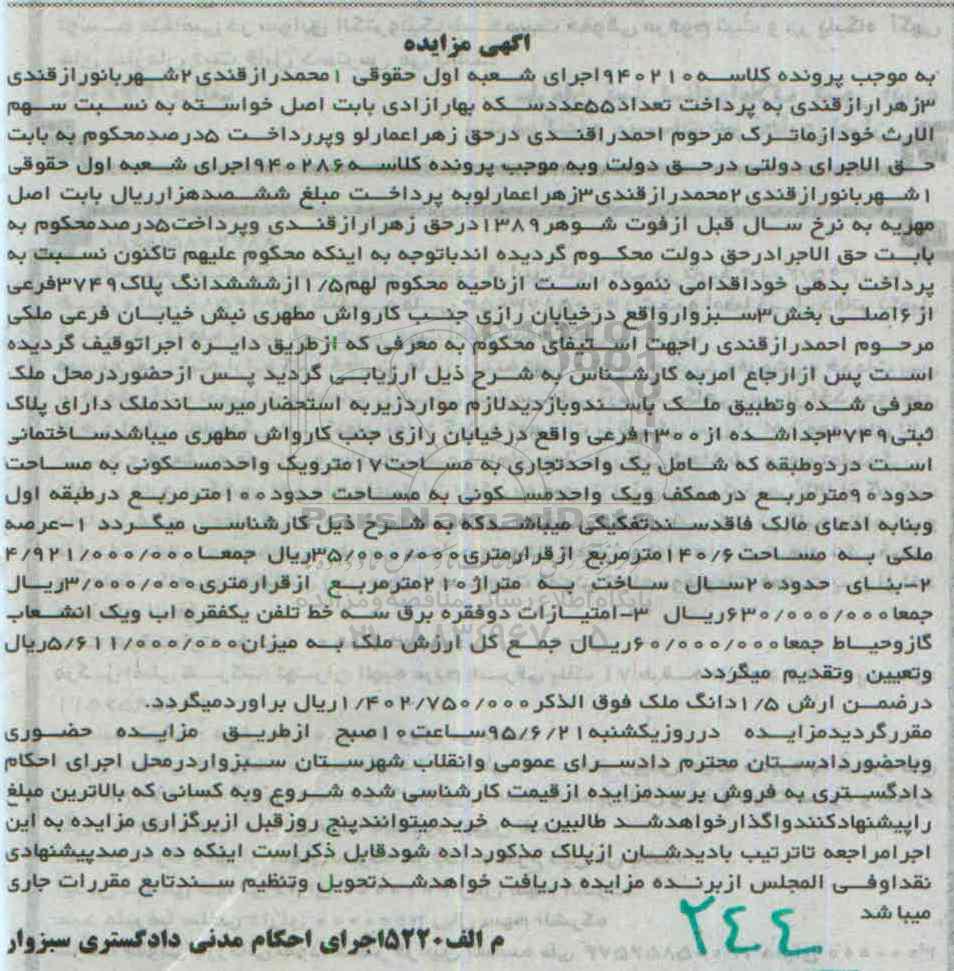 آگهی مزایده
به موجب پرونده کلاسه ۹۴۰۲۱۰اجرای شعبه اول حقوقی ۱محمدرازقندی۲شهربانورازقندی
۳زهرارازقندی به پرداخت تعداد۵۵عددسکه بهارازادی بابت اصل خواسته به نسبت سهم
الارث خودازماترک مرحوم احمدراقندی درحق زهراعمارلو وپررداخت ۵درصدمحکوم به بابت
حق الاجرای دولتی درحق دولت وبه موجب پرونده کلاسه۹۴۰۲۸۶اجرای شعبه اول حقوقی
۱شهربانورازقندی۲محمدرازقندی۳زهراعمارلوبه پرداخت مبلغ ششصدهزارریال بابت اصل
مهریه به نرخ سال قبل ازفوت شوهر۱۳۸۹درحق زهرارازقندی وپرداخت۵درصدمحکوم به
بابت حق الاجرادرحق دولت محکوم گردیده اندباتوجه به اینکه محکوم علیهم تاکنون نسبت به
پرداخت بدهی خوداقدامی ننموده است ازناحیه محکوم لهم۱/۵ازششدانگ پلاک۳۷۴۹فرعی
از۶اصلی بخش۳سبزوارواقع درخیابان رازی جنب کارواش مطهری نبش خیابان فرعی ملکی
مرحوم احمدرازقندی راجهت استیفای محکوم به معرفی که ازطریق دایره اجراتوقیف گردیده
است پس ازارجاع امربه کارشناس به شرح ذیل ارزیابی گردید پس ازحضوردرمحل ملک
معرفی شده وتطبیق ملک باسندوبازدیدلازم مواردزیربه استحضارمیرساندملک دارای پلاک
ثبتی۳۷۴۹جداشده از۱۳۰۰فرعی واقع درخیابان رازی جنب کارواش مطهری میباشدساختمانی
است دردوطبقه که شامل یک واحدتجاری به مساحت۱۷مترویک واحدمسکونی به مساحت
حدود۹۰مترمربع درهمکف ویک واحدمسکونی به مساحت حدود۱۰۰مترمربع درطبقه اول
وبنابه ادعای مالک فاقدسندتفکیکی میباشدکه به شرح ذیل کارشناسی میگردد ۱-عرصه
ملکی به مساحت۱۴۰/۶مترمربع ازقرارمتری۳۵/۰۰۰/۰۰۰ریال جمعا۴/۹۲۱/۰۰۰/۰۰۰
۲-بنای حدود۲۰سال ساخت به متراژ۲۱۰مترمربع ازقرارمتری۳/۰۰۰/۰۰۰ریال
جمعا۶۳۰/۰۰۰/۰۰۰ریال ۳-امتیازات دوفقره برق سه خط تلفن یکفقره اب ویک انشعاب
گازوحیاط جمعا۶۰/۰۰۰/۰۰۰ریال جمع کل ارزش ملک به میزان۵/۶۱۱/۰۰۰/۰۰۰ریال
وتعیین وتقدیم میگردد
درضمن ارش ۱/۵دانگ ملک فوق الذکر۱/۴۰۲/۷۵۰/۰۰۰ریال براوردمیگردد.
مقررگردیدمزایده درروزیکشنبه۹۵/۶/۲۱ساعت۱۰صبح ازطریق مزایده حضوری
وباحضوردادستان محترم دادسرای عمومی وانقلاب شهرستان سبزواردرمحل اجرای احکام
دادگستری به فروش برسدمزایده ازقیمت کارشناسی شده شروع وبه کسانی که بالاترین مبلغ
راپیشنهادکنندواگذارخواهدشد طالبین به خریدمیتوانندپنج روزقبل ازبرگزاری مزایده به این
اجرامراجعه تاترتیب بادیدشان ازپلاک مذکورداده شودقابل ذکراست اینکه ده درصدپیشنهادی
نقداوفی المجلس ازبرنده مزایده دریافت خواهدشدتحویل وتنظیم سندتابع مقررات جاری
میباشد
م الف۵۲۲۰اجرای احکام مدنی دادگستری سبزوار
۲۴۴
ParsNamadData